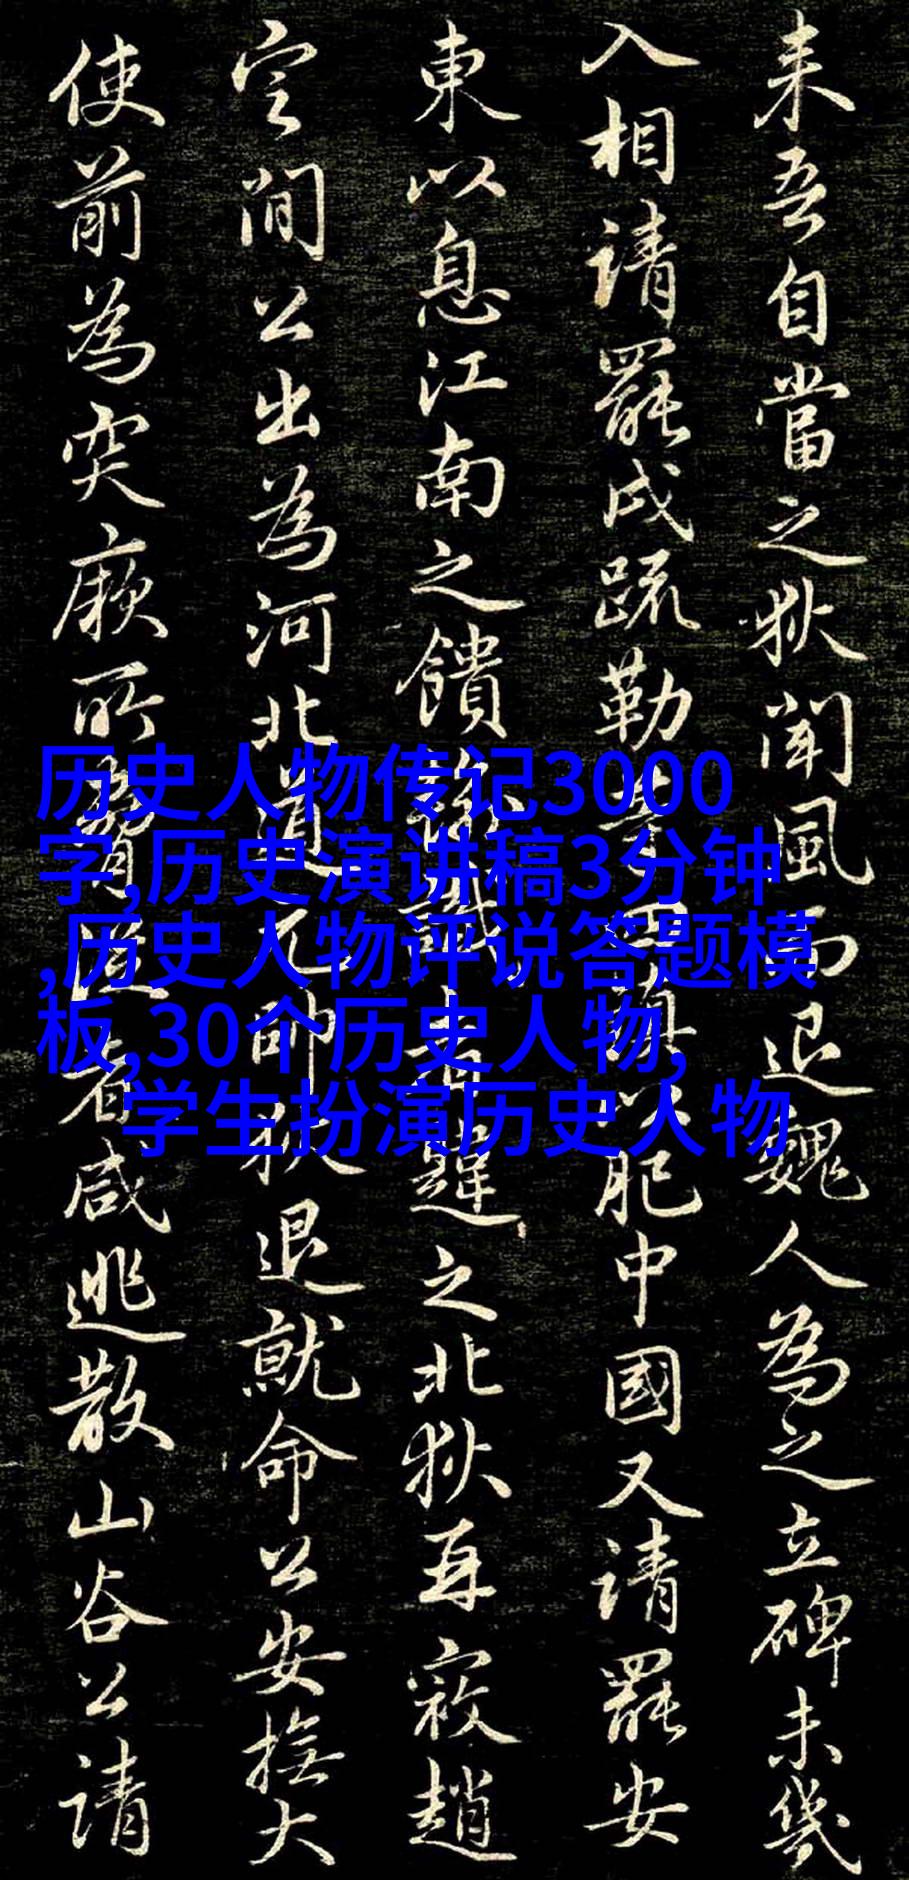 来吾自當之狄聞風而退魏人為之立碑未幾
入相請罷戍疏勒等四鎮以肥中國又請罷安
東以息江南之饋輸識者韙之北狄再寇趙
定間公出為河北道元帥狄退就命公安撫大
使前為突厥所脅從者咸逃散山谷公請
历史人物传记3000
字,历史演讲稿3分钟
,历史人物评说答题模
板,30个历史人物,
学生扮演历史人物